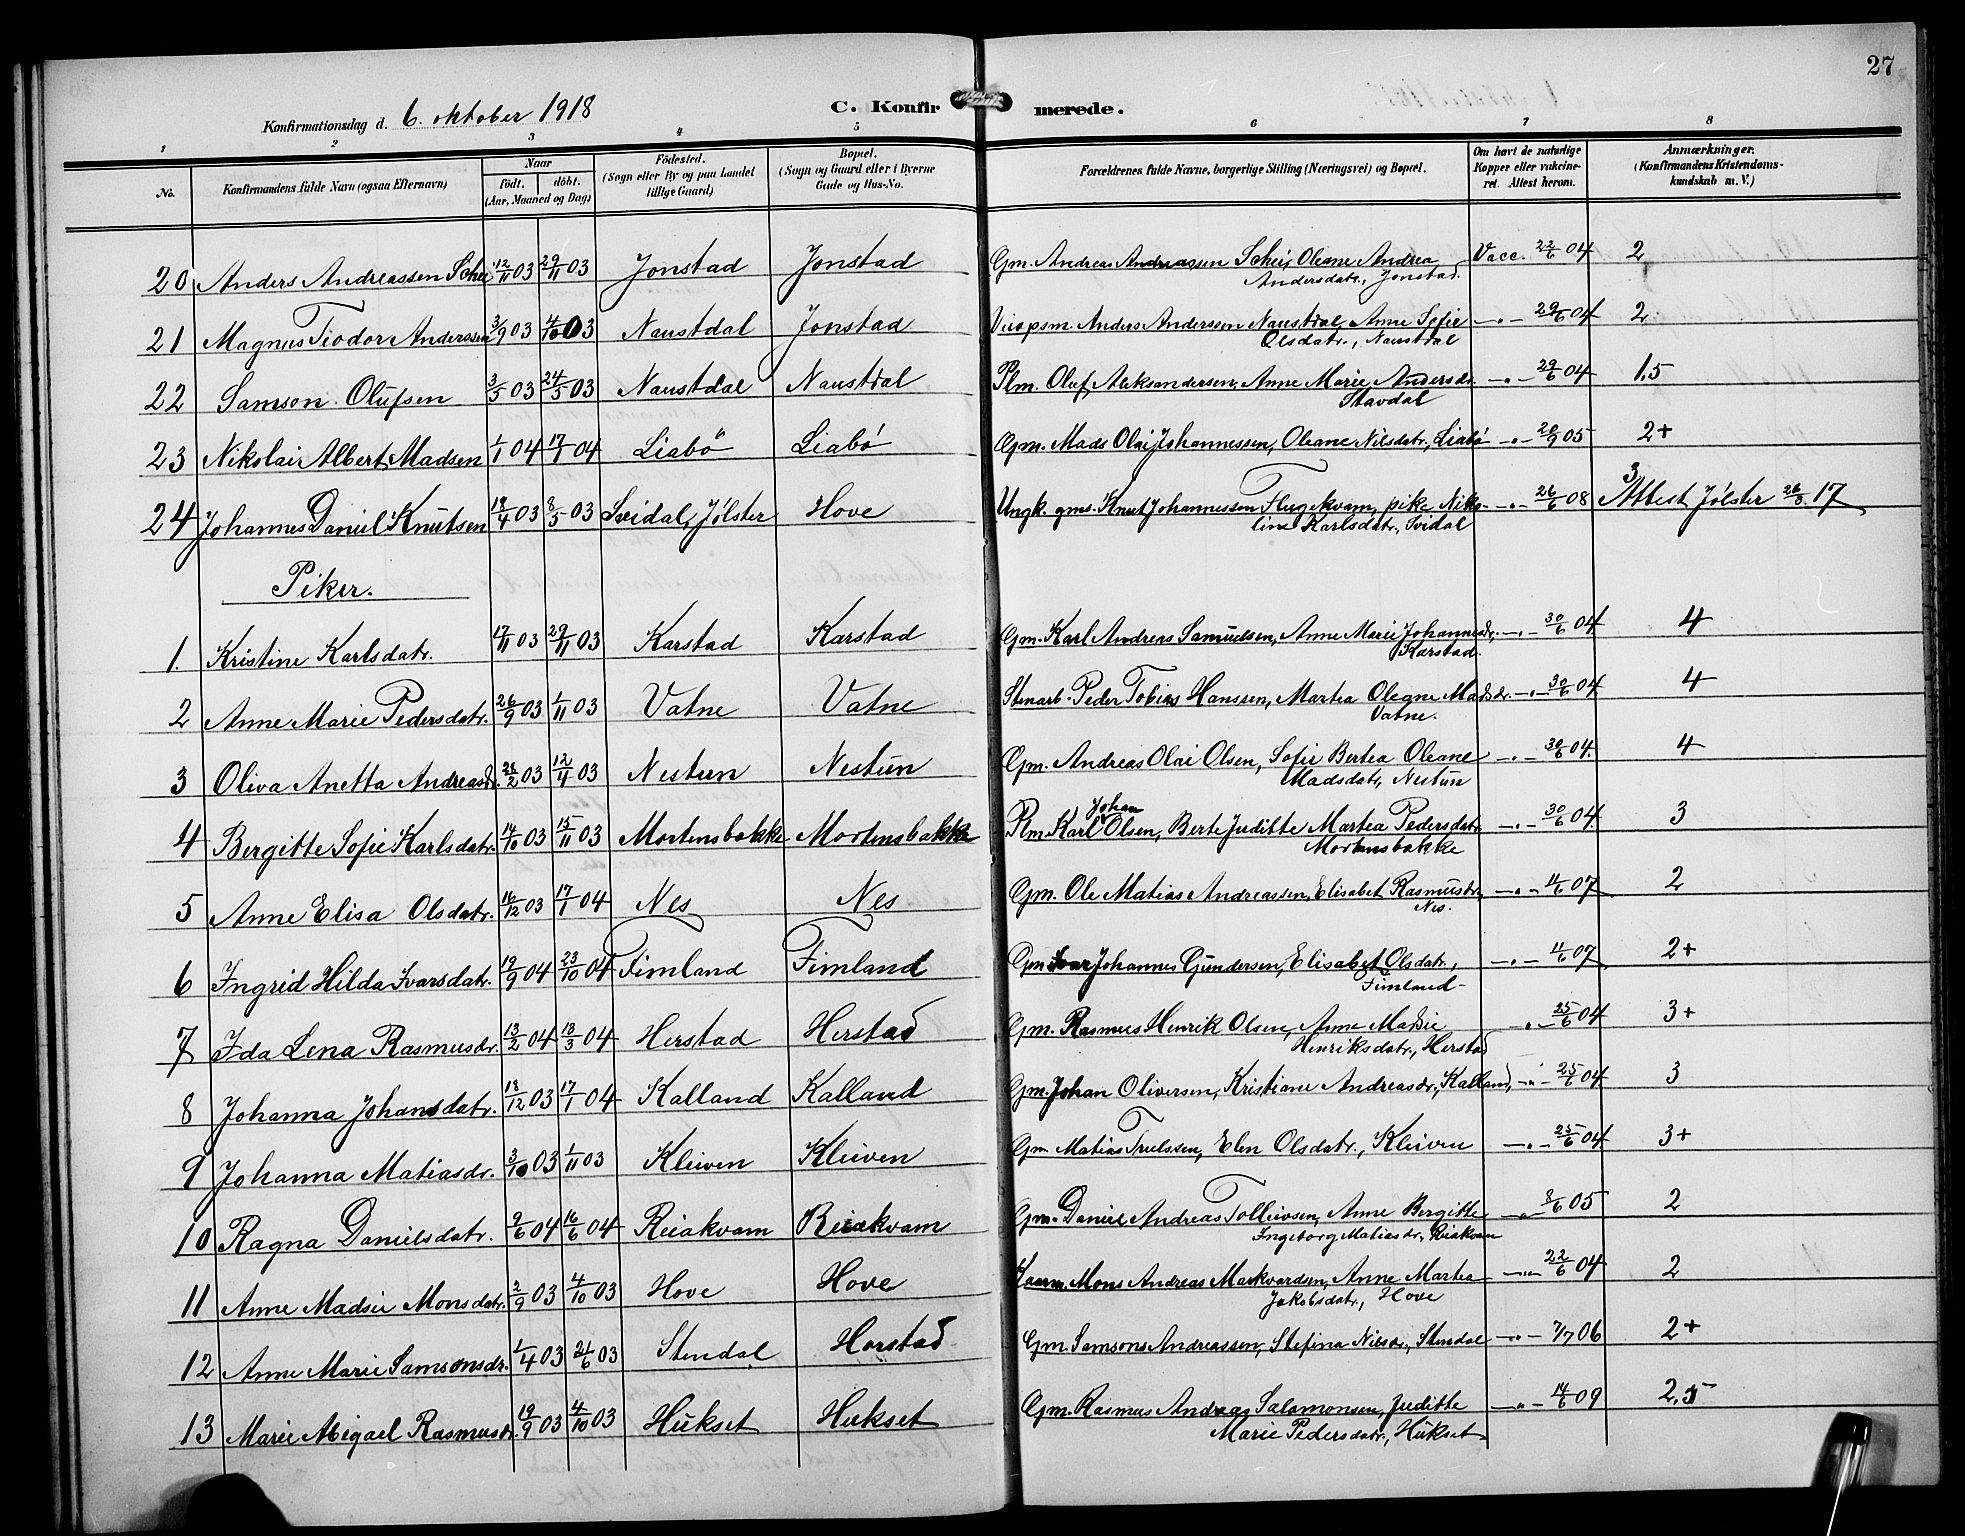 27
Konfirmationsdag d. 6. oktober 1918 C. Konfirmerede.
1 2 3 4 5 6 7 8
No. Konfirmandens fulde Navn (ogsaa Efternavn) Naar født. døbt. (Aar, Maaned og Dag) Fødested. (Sogn eller By og paa Landet tillige Gaard) Bopæl. (Sogn og Gaard eller i Byerne Gade og Hus-No. Forældrenes fulde Navne, borgerlige Stilling (Næringsvei) og Bopæl. Om havt de naturlige Kopper eller vakcineret. Attest herom. Anmærkninger. (Konfirmandens Kristendomskundskab m. V.)
20 Anders Andreassen Schei 12/11 03 29/11 03 Jonstad Jonstad Gm. Andreas Andreassen Schei, Oleane Andrea Vacc. 22/6 04 2
Andersdatr., Jonstad.
21 Magnus Tiodor Anderssen 3/9 03 4/10 03 Naustdal Jonstad Anders Anderssen Naustdal, Anne Sofie -"- 29/6 04 2
Olsdatr., Naustdal
22 Samson Olufsen 3/5 03 24/5 03 Naustdal Naustdal Plm. Oluf Aleksandersen, Anne Marie Andersdr. -"- 29/6 04 1,5
Stavdal
23 Nikolai Albert Madsen 1/1 04 17/1 04 Liabö Liabö Gm. Mads Olai Johannessen, Oleane Nilsdatr., Liabö -"- 20/9 05 2+
24 Johannes Daniel Knutsen 18/4 03 8/5 03 Svidal, Jølster Hove Ungk. gms. Knut Johannessen Flugekvam, pike Niko- -"- 26/6 08 3 Attest Jølster 26/3 17
line Karlsdatr., Svidal
Piker.
1. Kristine Karlsdatr. 17/11 03 29/11 03 Karstad Karstad Gm. Karl Andreas Samuelsen, Anne Marie Johannesdr. -"- 30/6 04 4
Karstad.
2 Anne Marie Pedersdatr. 26/9 03 1/11 03 Vatne Vatne Stenarb. Peder Tobias Hanssen, Martea Oleane Madsdr. -"- 30/6 04 4
Vatne.
3 Oliva Anetta Andreasdr. 28/2 03 12/4 03 Nestun Nestun Gm. Andreas Olai Olsen, Sofie Bertea Oleane -"- 30/6 04. 4
Madsdatr, Nestun
4 Bergitte Sofie Karlsdatr. 14/10 03 15/11 03 Mortensbakke Mortensbakke Plm. Karl Johan Olsen, Berte Juditte Martea Pedersdatr. -"- 30/6 04 3
Mortensbakke
5 Anne Elisa Olsdatr. 16/12 03 17/1 04 Nes Nes Gm. Ole Matias Andreassen, Elisabet Rasmusdr. -"- 11/6 07 2
Nes.
6 Ingrid Hilda Ivarsdatr. 19/9 04 23/10 04 Fimland Fimland Gm. Ivar Johannes Gundersen, Elisabet Olsdatr., -"- 11/6 07 2+
Fimland-
7 Ida Lena Rasmusdr. 13/2 04 13/3 04 Herstad Herstad Gm. Rasmus Henrik Olsen, Anne Madsie -"- 25/6 04 3+
Henriksdatr., Herstad
8 Johanna Johansdatr. 18/12 03 17/1 04 Kalland Kalland Gm. Johan Oliversen, Kristiane Andreasdr., Kalland, -"- 25/6 04 3
9 Johanna Matiasdr. 3/10 03 1/11 03 Kleiven Kleiven Gm. Matias Truelssen, Elen Olsdatr., Kleiven -"- 25/6 04 3+
10 Ragna Danielsdatr. 9/6 04 16/6 04 Reiakvam Reiakvam Gm. Daniel Andreas Tolleivsen, Anne Bergitte -"- 8/6 05 2
Ingeborg Matiasdr., Reiakvam
11 Anne Madsie Monsdatr. 2/9 03 4/10 03 Hove Hove Mons Andreas Markvardsen, Anne Martea -"- 22/6 04 2
Jakobsdatr., Hove
12 Anne Marie Samsonsdr. 1/4 03 21/6 03 Stendal Horstad Gm. Samsons Andreassen, Stefina Nilsdr., Stendal -"- 7/7 06 2+
13 Marie Abigael Rasmusdr. 19/9 03 4/10 03 Hukset Hukset Gm. Rasmus Andreas Salomonsen, Juditte -"- 14/6 09 2,5
Marie Pedersdatr., Hukset